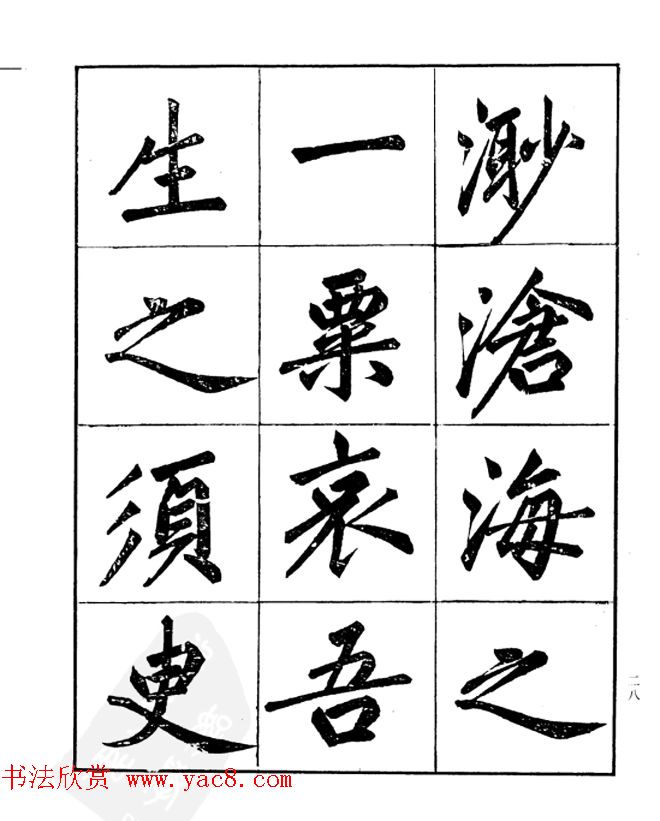 渺滄海之
一粟哀吾
生之須臾
二八
书法欣赏 www.yac8.com